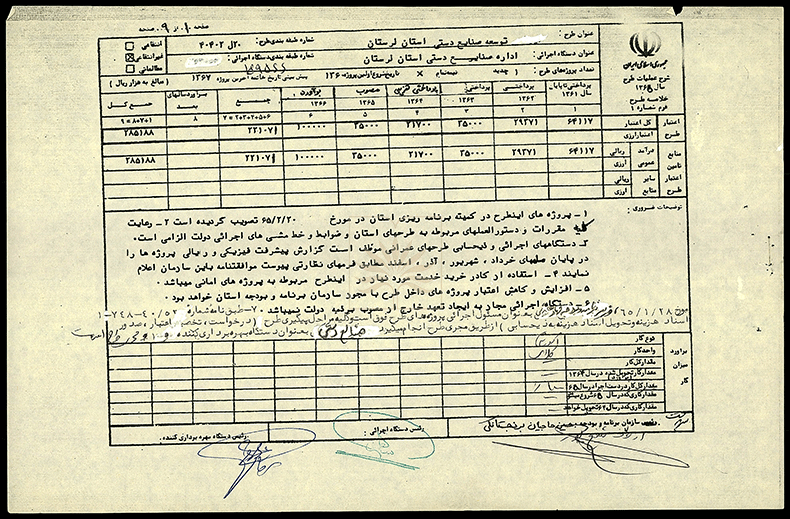 صفحه ۱ از ۹ صفحه
جمهوری اسلامی ایران
شرح عملیات طرح
سال ۱۳۶۵
خلاصه طرح
فرم شماره ۱
عنوان طرح : توسعه صنایع دستی استان لرستان
شماره طبقه بندی طرح : ۲۰ل ۴۰۴۰۲
انتفاعی
عنوان دستگاه اجرائی : اداره صنایع دستی استان لرستان
شماره طبقه بندی دستگاه اجرائی :
غیرانتفاعی
مطالعاتی
تعداد پروژه های طرح : ( جدید نیمه تمام x ) تاریخ شروع اولین پروژه ۱۳۶۰
پیش بینی تاریخ خاتمه آخرین پروژه ۱۳۶۷
( مبالغ به هزار ریال )
پرداختی تا پایان سال ۱۳۶۱ پرداختی ۱۳۶۲ پرداختی ۱۳۶۳ ۱۳۶۴ مصوب ۱۳۶۵ برآورد ۱۳۶۶ جمع برآورد سالهای بعد جمع کل
۱ ۲ ۳ ۴ ۵ ۶ ۸
اعتبار طرح کل اعتبار ۶۴۱۱۷ ۲۹۳۷۱ ۳۵۰۰۰ ۲۱۷۰۰ ۳۵۰۰۰ ۱۰۰۰۰۰ ۲۸۵۱۸۸
اعتبار ارزی
منابع تامین اعتبار طرح
درآمد عمومی ریالی ۶۴۱۱۷ ۲۹۳۷۱ ۳۵۰۰۰ ۲۱۷۰۰ ۳۵۰۰۰ ۱۰۰۰۰۰ ۲۸۵۱۸۸
ارزی
سایر منابع ریالی
ارزی
توضیحات ضروری :
۱ - پروژه های اینطرح در کمیته برنامه ریزی استان در مورخ ۶۵/۲/۲۰ تصویب گردیده است ۲ - رعایت
کلیه مقررات و دستورالعملهای مربوطه به طرحهای استان و ضوابط و خط مشی های اجرائی دولت الزامی است .
دستگاههای اجرائی و ذیحسابی طرحهای عمرانی موظف است گزارش پیشرفت فیزیکی و ریالی پروژه ها را
در پایان ماههای خرداد ، شهریور ، آذر ، اسفند مطابق فرمهای نظارتی پیوست موافقتنامه باین سازمان اعلام
نمایند ۴ - استفاده از کادر خرید خدمت مورد نیاز در اینطرح مربوطه به پروژه های امانی میباشد .
۵ - افزایش و کاهش اعتبار پروژه های داخل طرح با مجوز سازمان برنامه و بودجه استان خواهد بود .
۶ - دستگاه اجرائی مجاز به ایجاد تعهد خارج از مصوب برنامه دولت نمیباشد ۷ - طبق نامه شماره
مورخ ۶۵/۱/۲۸ بعنوان مسئول اجرائی پروژه های طرح فوق است و کلیه مراحل پیگیری طرح ( درخواست ، تخصیص اعتبار ، صدور
اسناد هزینه و تحویل اسناد هزینه به ذیحسابی ) از طریق مجری طرح انجام میگیرد بعنوان دستگاه بهره برداری کننده
برآورد میزان کار
نوع کار
واحد کار
مقدار کل کار
مقدار کار تحویل شده در سال ۱۳۶۴
مقدار کل کار در دست اجرا در سال ۶۵
مقدار کاری که در سال ۶۵ شروع میشود
رئیس سازمان برنامه و بودجه
رئیس دستگاه اجرائی :
رئیس دستگاه بهره برداری کننده .